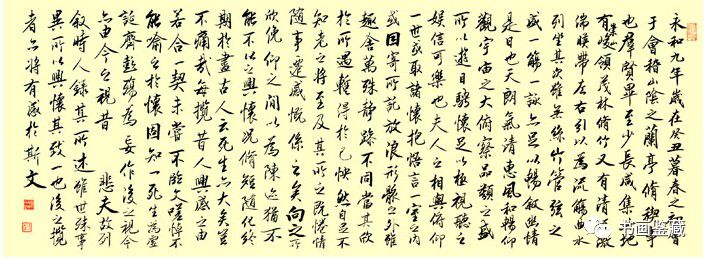 永和九年歲在癸丑暮春之初會
于會稽山陰之蘭亭脩禊事
也群賢畢至少長咸集此地
有崇山峻領茂林脩竹又有清流激
湍暎帶左右引以為流觴曲水
列坐其次雖無絲竹管弦之
盛一觴一詠亦足以暢敘幽情
是日也天朗氣清惠風和暢仰
觀宇宙之大俯察品類之盛
所以遊目騁懷足以極視聽之
娛信可樂也夫人之相與俯仰
一世或取諸懷抱悟言一室之內
或因寄所託放浪形骸之外雖
趣舍萬殊靜躁不同當其欣
於所遇暫得於己怏然自足不
知老之將至及其所之既惓情
隨事遷感慨係之矣向之所
欣俛仰之間以為陳迹猶不
能不以之興懷況脩短隨化終
期於盡古人云死生亦大矣豈
不痛哉每攬昔人興感之由
若合一契未嘗不臨文嗟悼不
能喻之於懷固知一死生為虛
誕齊彭殤為妄作後之視今
亦由今之視昔悲夫故列
敘時人錄其所述雖世殊事
異所以興懷其致一也後之攬
者亦將有感於斯文
书画鉴藏